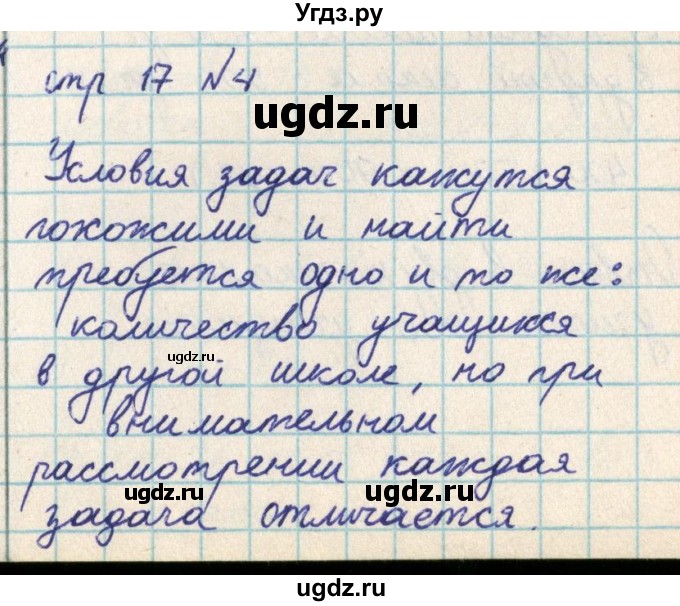 Угдз.ру
стр 17 №4
ugdz.ru
Условия задач кажутся
похожими и найти
требуется одно и то же:
количество учащихся
ugdz.ru
в другой школе, но при
внимательном
рассмотрении каждая
ugdz.ru ugdz.ru
задача отличается.
ugdz.ru